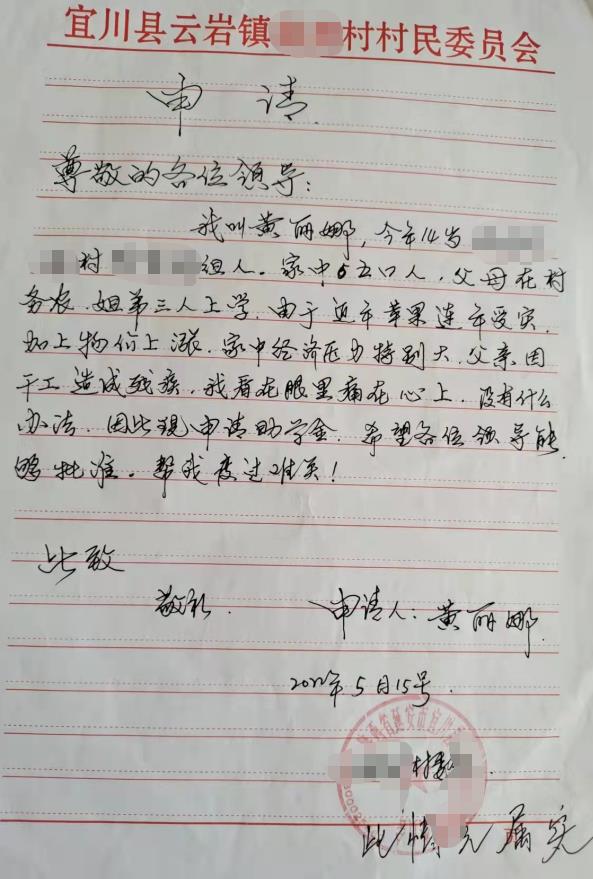 宜川县云岩镇村村民委员会
申 请
尊敬的各位领导：
我叫黄丽娜，今年14岁
村组人。家中5五口人，父母在村
务农，姐弟三人上学，由于近年苹果连年受灾，
加上物价上涨，家中经济压力特别大，父亲因
干工造成残疾，我看在眼里痛在心上，没有什么
办法，因此现申请助学金，希望各位领导能
够批准。帮我度过难关！
此致
敬礼
申请人：黄丽娜
2022年5月15号
陕西省延安市宜川县
村委
此情况属实